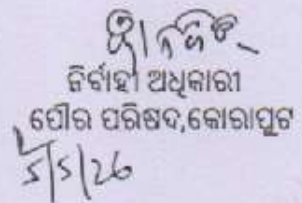 ନିର୍ବାହୀ ଅଧିକାରୀ
ପୌର ପରିଷଦ,କୋରାପୁଟ
5/5/26